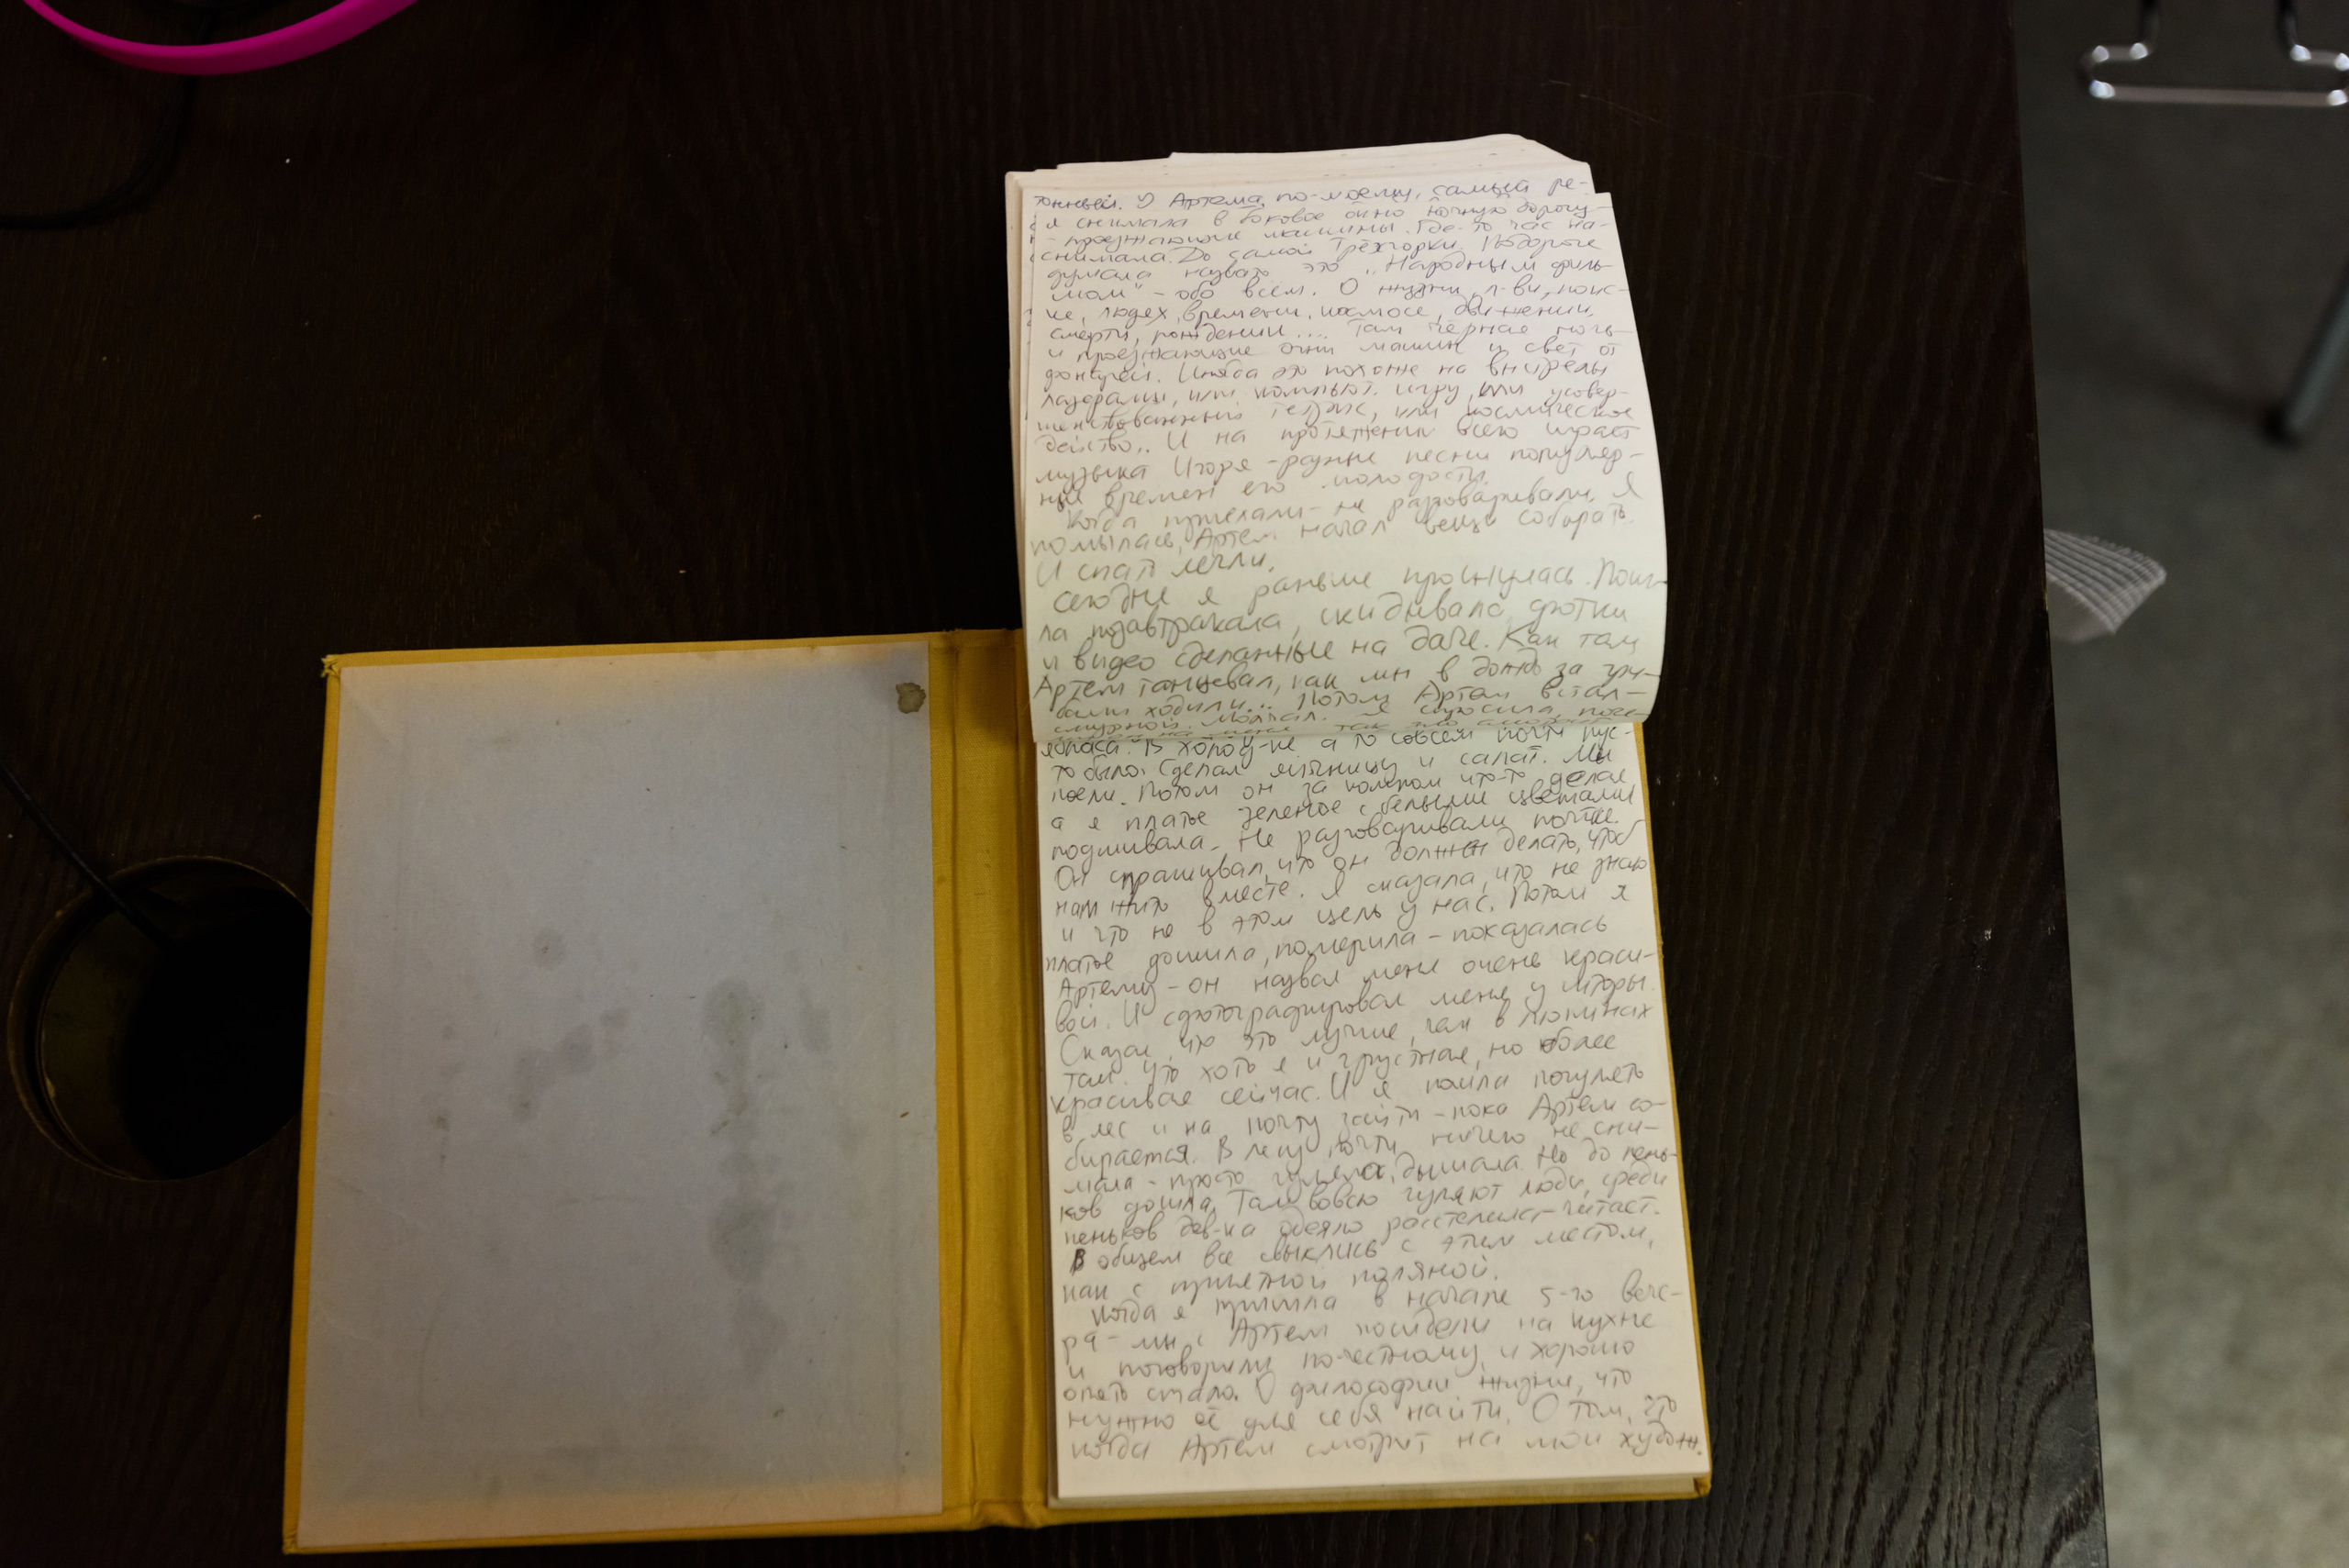 тонный. У Артема, по-моему, самый ре-
я снимала в боковое окно ночную дорогу-
- проезжающие машины. Где-то час на-
снимала. До самой Трёхгорки. По дороге
думала назвать это „Народным филь-
мом" - обо всем. О жизни, л-ви, поис-
ке, людях, времени, космосе, движении,
смерти, рождении.... Там черная ночь
и проезжающие огни машин и свет от
фонарей. Иногда это похоже на выстрелы
лазерами, или компьют. игру, или усовер-
шенствованный тетрис, или космическое
действо.. И на протяжении всего играет
музыка Игоря - разные песни популяр-
ные времен его молодости.
Когда приехали - не разговаривали. Я
помылась, Артем начал вещи собирать.
И спать легли.
Сегодня я раньше проснулась.
ла позавтракала, скидывала фотки
и видео сделанные на даче. Как там
Артем танцевал, как мы в дождь за гри-
бами ходили... Потом Артем встал -
смурной. Молчал. Я спросила, поче-
В холод-ке а то совсем почти пус-
то было. Сделал яичницу и салат. Мы
поели. Потом он за компом что-то делал
а я платье зеленое с белыми цветами
подшивала. Не разговаривали почти.
Он спрашивал, что он должен делать, чтоб
нам жить вместе. Я сказала, что не знаю
и что не в этом цель у нас. Потом я
платье дошила, померила - показалась
Артему - он назвал меня очень краси-
вой. И сфотографировал меня у шторы.
Сказал, что это лучше, чем в Люжинах
там. Что хоть я и грустная, но более
красивая сейчас. И я пошла погулять
в лес и на почту зайти - пока Артем со-
бирается. В лесу почти ничего не сни-
мала - просто гуляла, дышала. Но до пень-
ков дошла. Там вовсю гуляют люди, среди
пеньков дев-ка одеяло расстелила - читает.
В общем все свыклись с этим местом,
как с приятной поляной.
Когда я пришла в начале 5-го вече-
ра - мы с Артем посидели на кухне
и поговорили по-честному и хорошо
опять стало. О философии жизни, что
нужно её для себя найти. О том, что
когда Артем смотрит на мои худож.